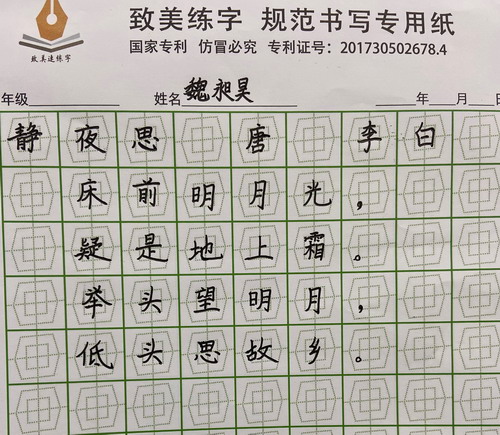 致美练字 规范书写专用纸
国家专利 仿冒必究 专利证号：201730502678.4
致美速练字
年级 姓名 魏昶昊 年 月 日
静夜思 唐 李白
床前明月光，
疑是地上霜。
举头望明月，
低头思故乡。